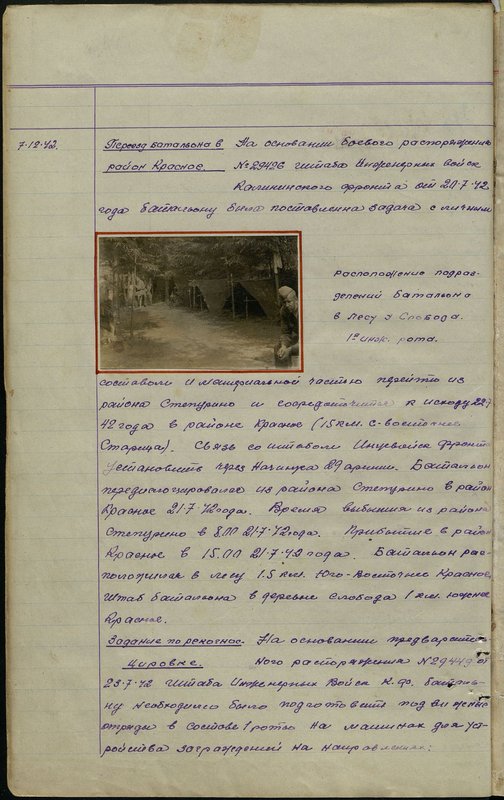 7·12·42.
Переезд батальона в На основании боевого распоряжения
район Красное. №29426 штаба Инженерных войск
Калининского фронта от 20·7·42.
года батальону была поставленна задача с личным
расположение подраз-
делений батальона
в лесу Слобода.
1я инж. рота.
составом и материальной частью перейти из
района Степурино и сосредоточится к исходу 22·7
42 года в районе Красное (15 км. с-восточнее
Старица). Связь со штабом фронта
установить через начинжа 29 армии. Батальон
передислоцировался из района Степурино в район
Красное 21·7·42 года. Время выбытия из района
Степурино в 8.00 21·7·42 года. Прибытие в район
Красное в 15.00 21·7·42 года. Батальон рас-
положился в лесу 1.5 км. Юго-Восточнее Красное,
штаб батальона в деревне Слобода 1 км. южнее
Красное.
Задание по рекогнос- На основании предварител
цировке. ного распоряжения №29449 от
23·7·42 штаба Инженерных Войск К.Ф. баталь-
ну необходимо было подготовить подвижные
отряды в составе 1 роты на машинах для уст-
ройства заграждений на направлениях: